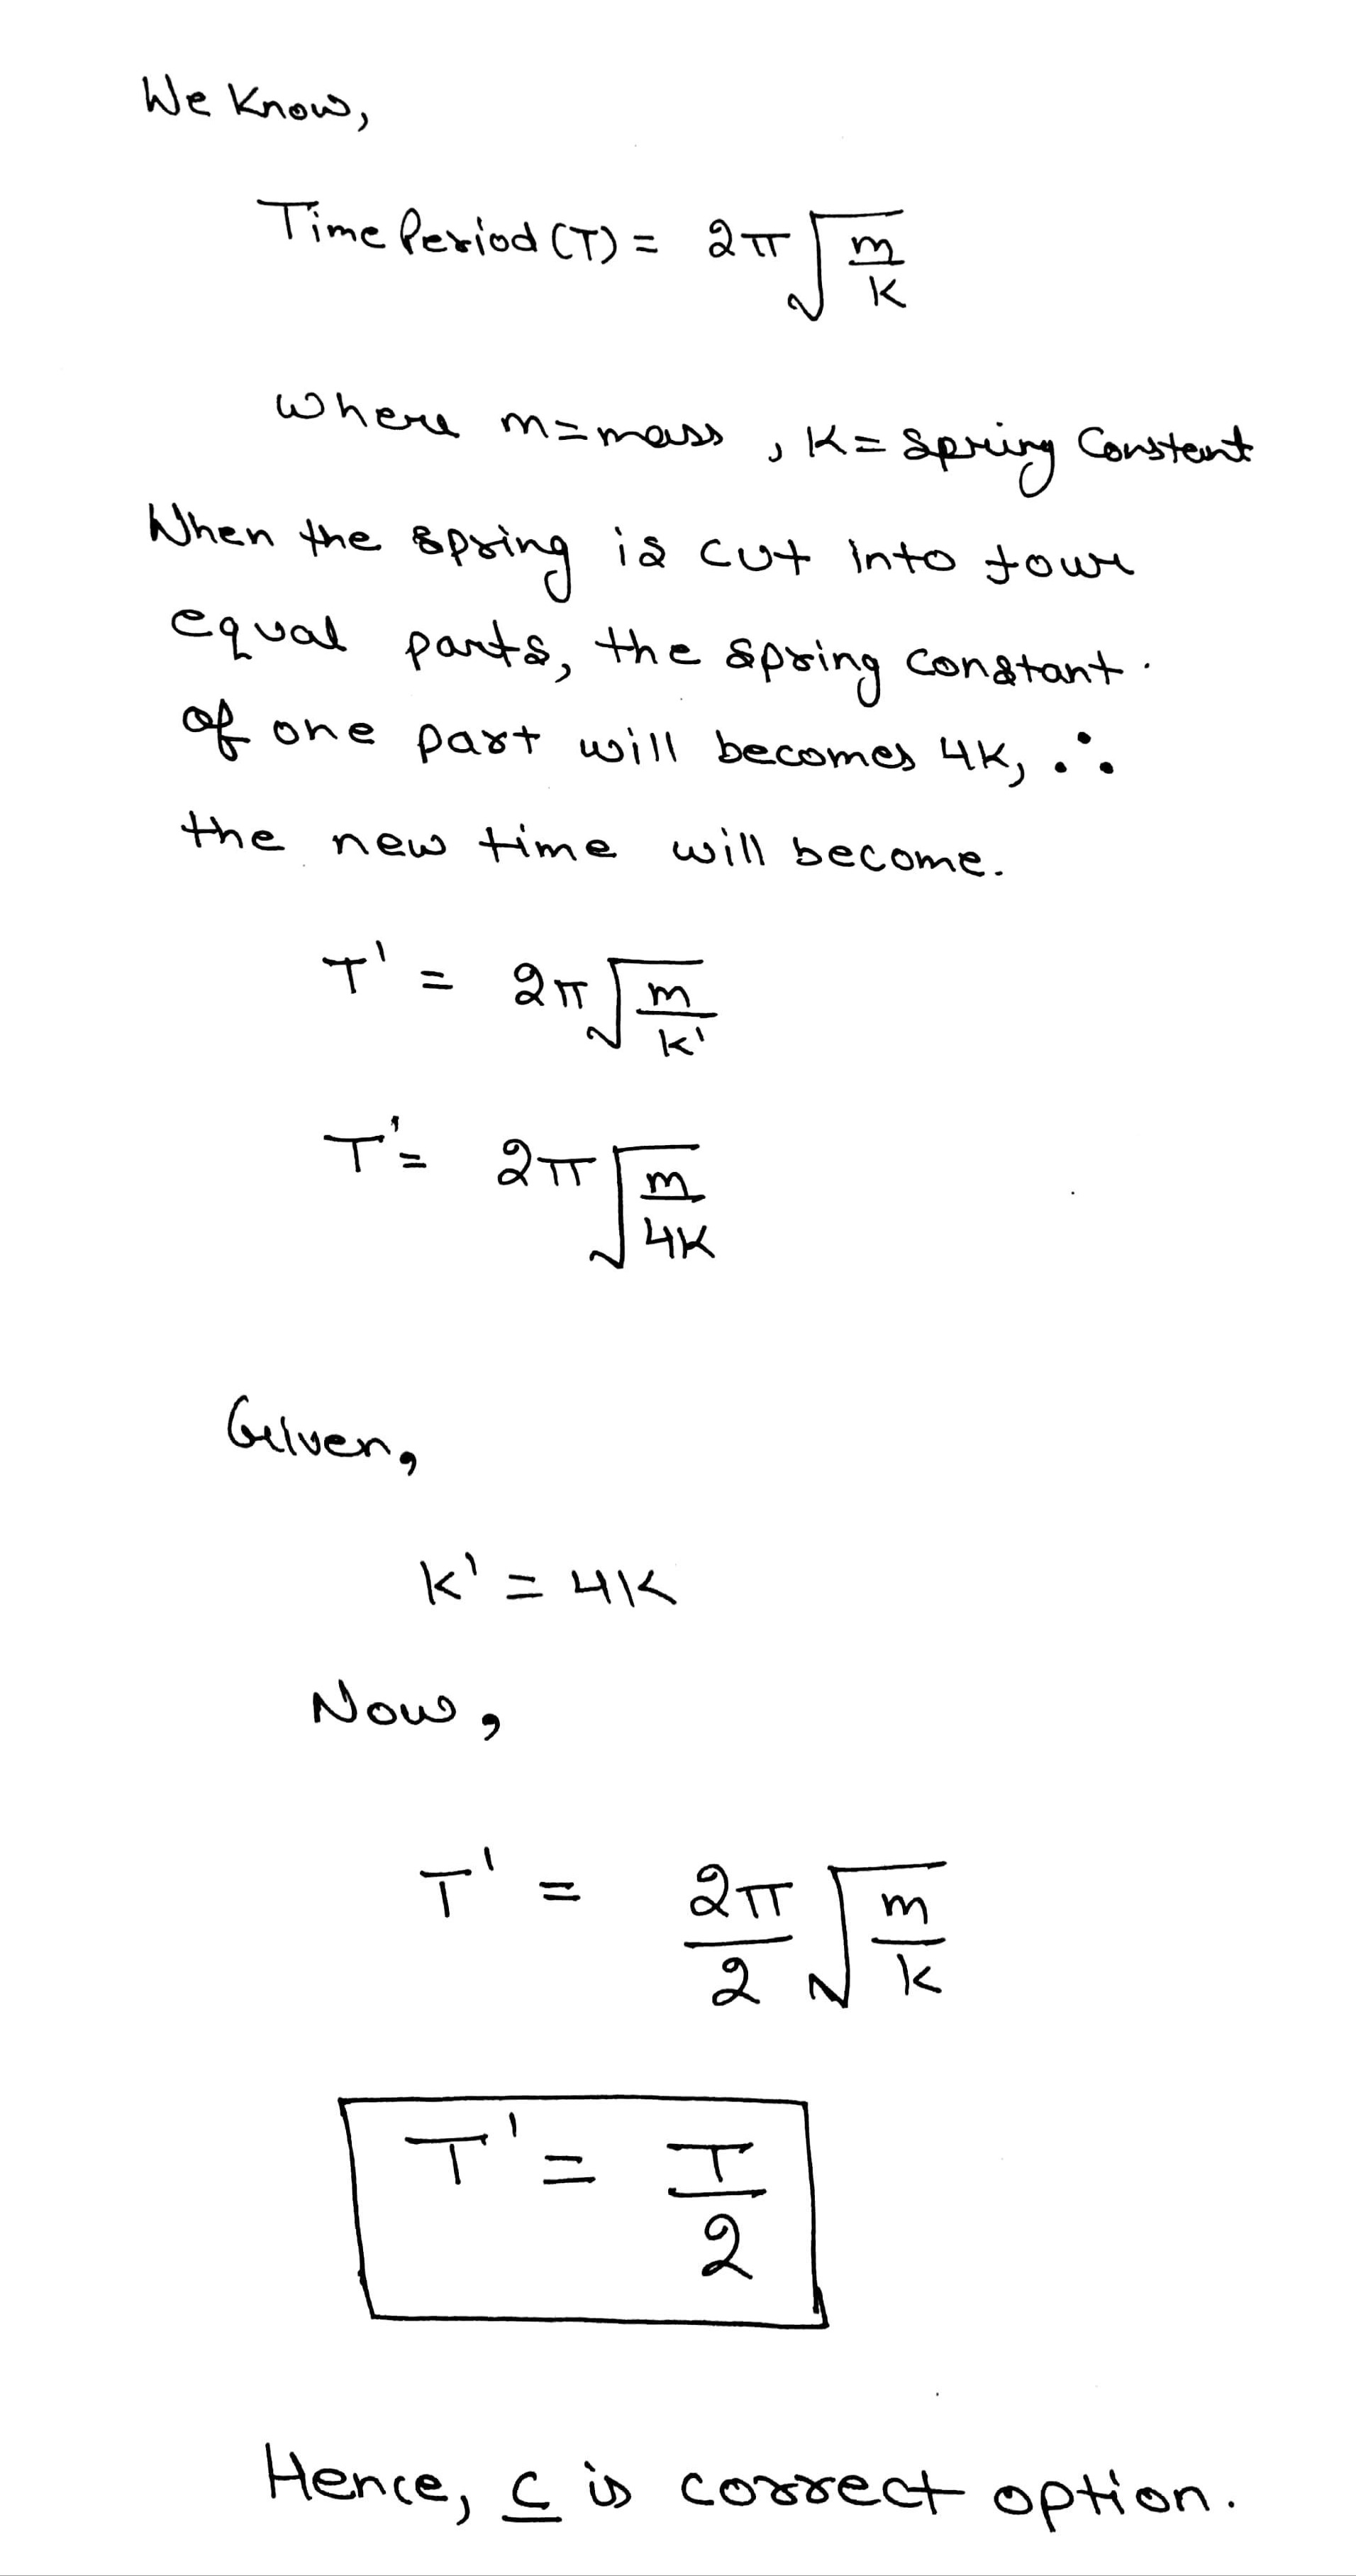 We Know,
Time Period (T) = 2π √(m/K)
where m = mass , K = Spring Constant
When the spring is cut into four
equal parts, the spring constant
of one part will becomes 4K, ∴
the new time will become.
T' = 2π √(m/k')
T' = 2π √(m/4K)
Given,
K' = 4K
Now,
T' = 2π/2 √(m/k)
T' = T/2
Hence, C is correct option.